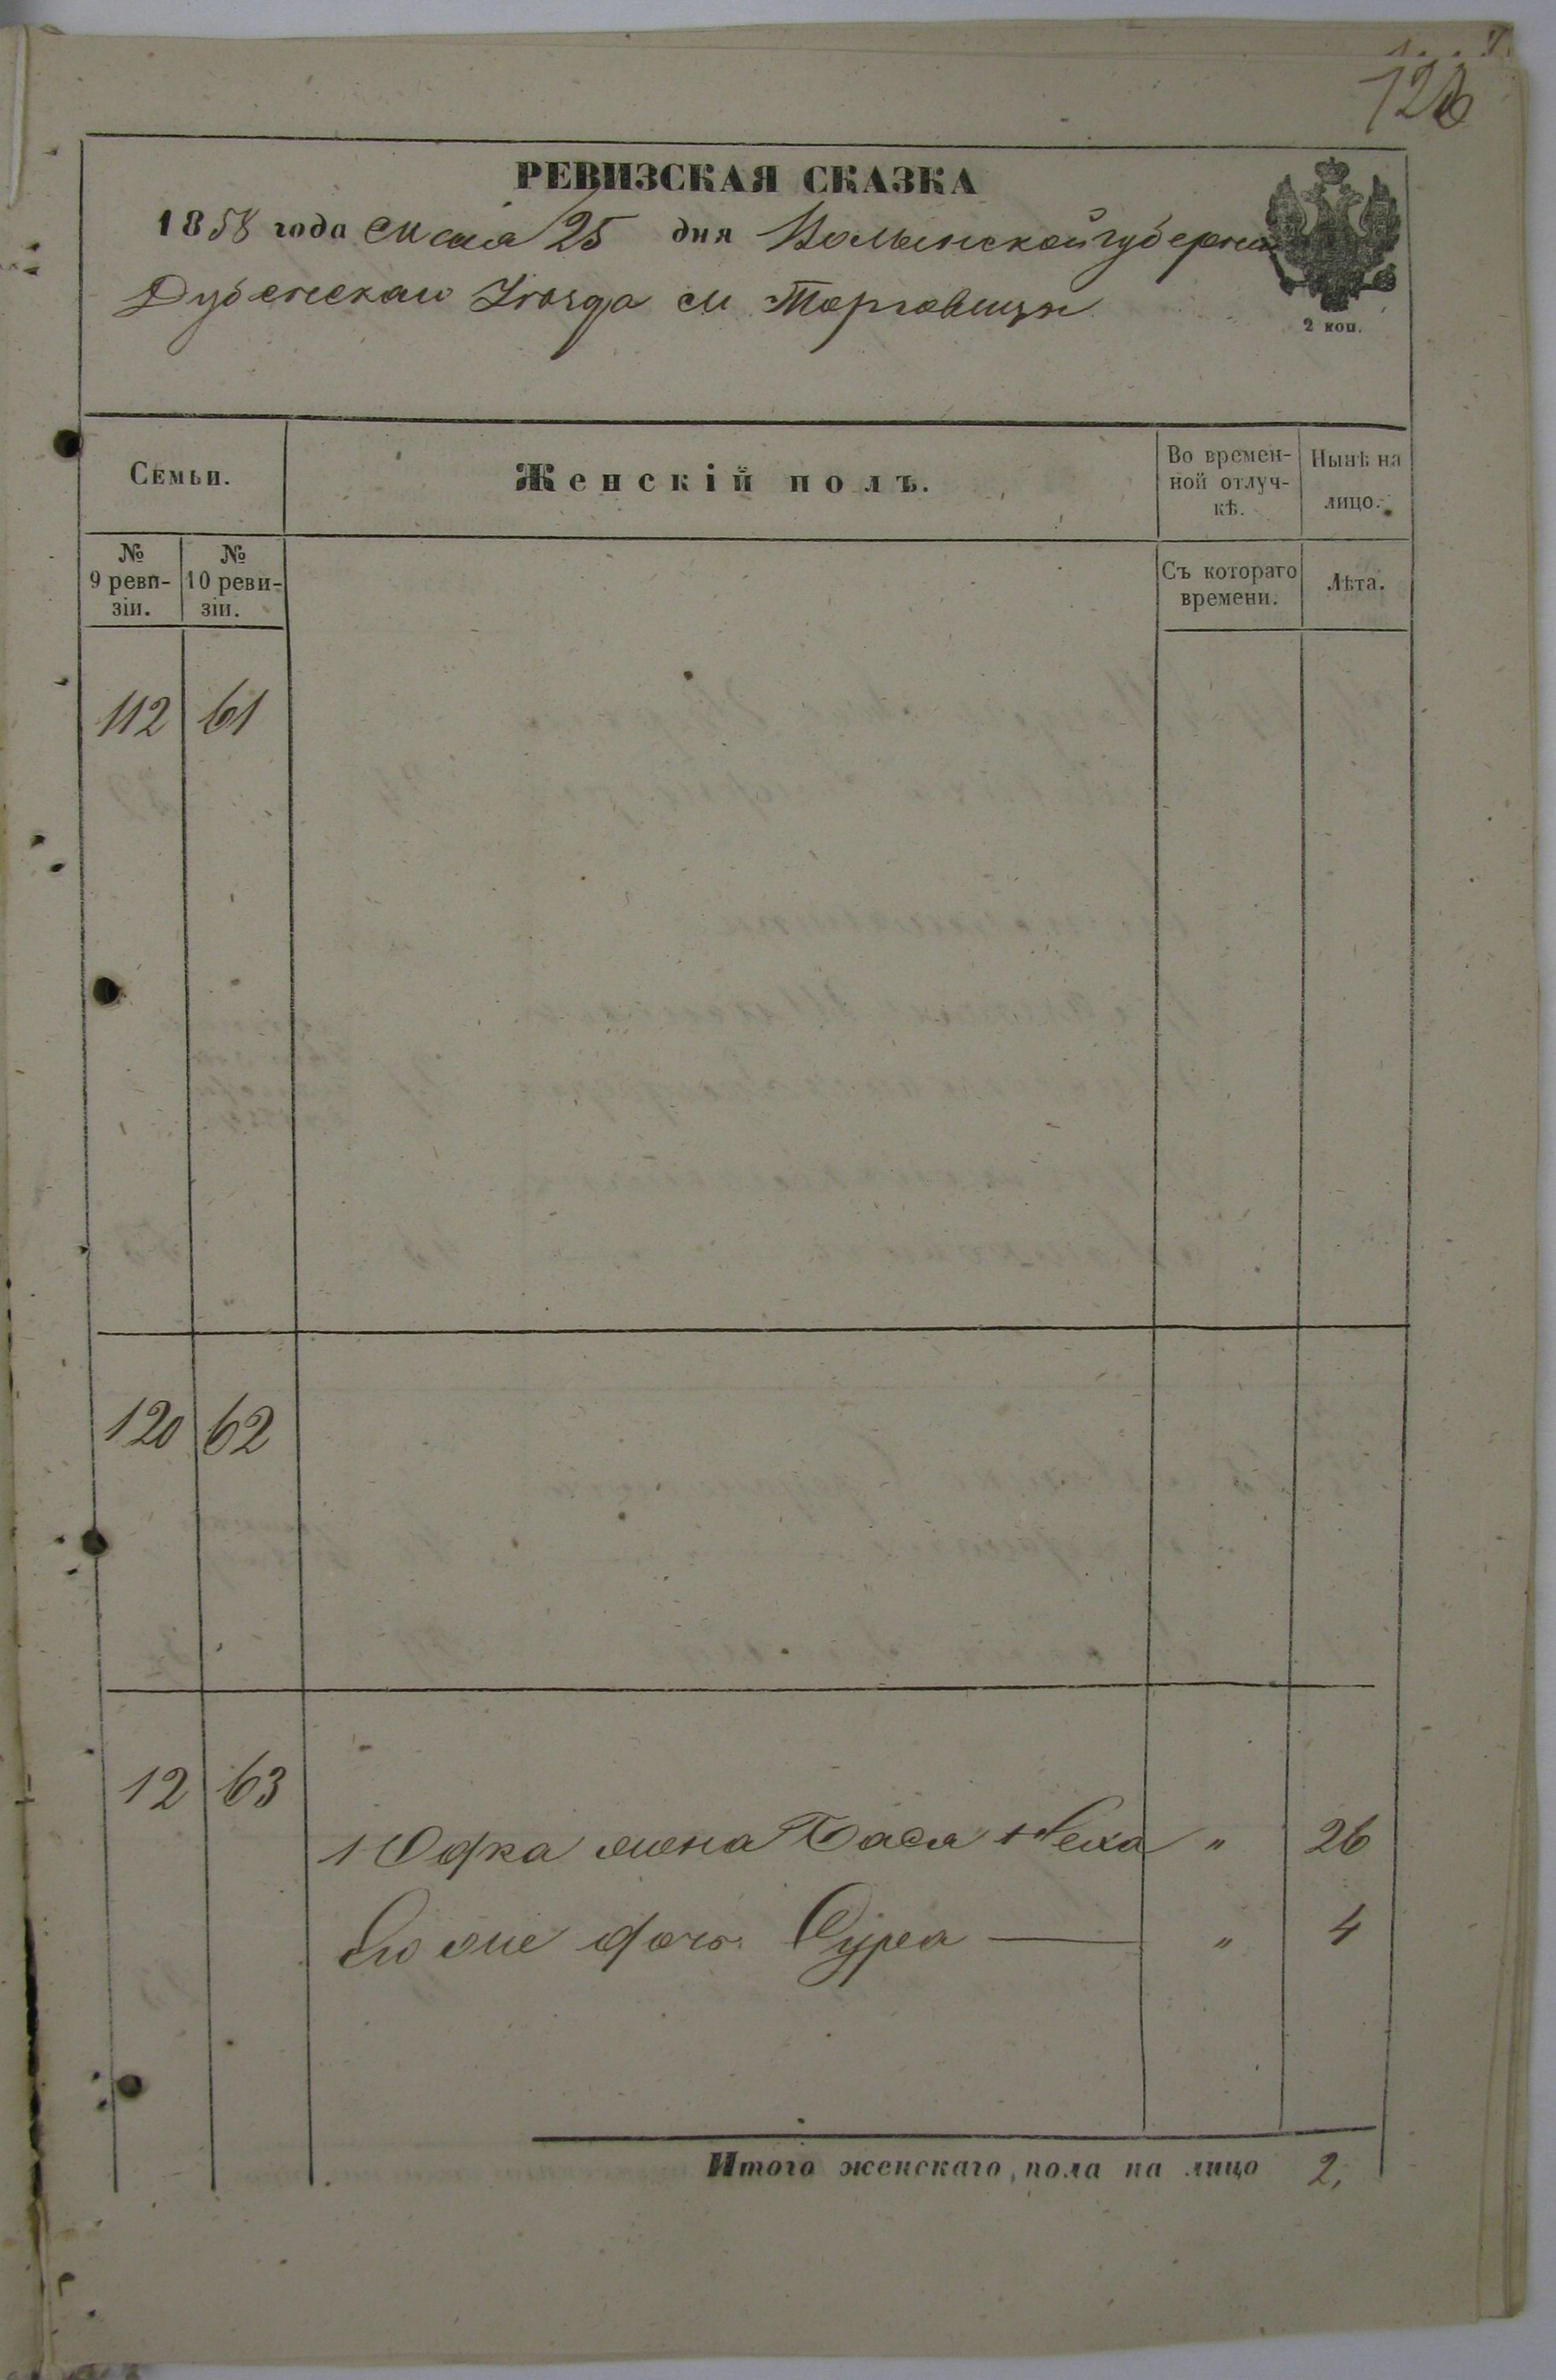 126
РЕВИЗСКАЯ СКАЗКА
1858 года Мая 25 дня Волынской губернии
Дубенскаго Уезда м Торговицы
2 коп.
Семьи.
Женскій полъ.
Во времен-
ной отлуч-
кѣ.
Нынѣ на
лицо.
№
9 реви-
зіи.
№
10 реви-
зіи.
Съ котораго
времени.
Лѣта.
112 61
120 62
12 63
Юдка жена Бася Неха " 26
Его же дочь Сура — " 4
Итого женскаго пола на лицо 2.